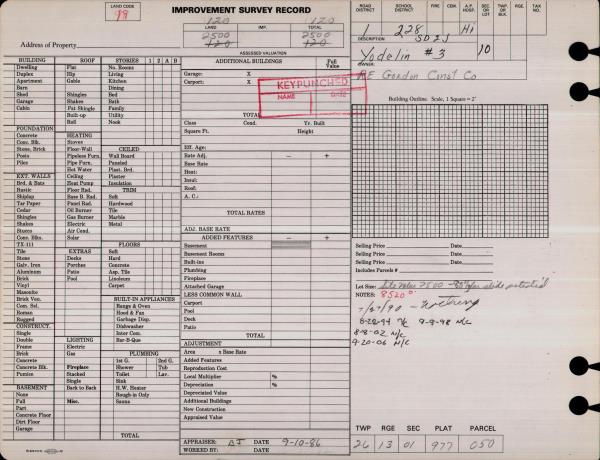 LAND CODE
19
IMPROVEMENT SURVEY RECORD
120 120
LAND IMP. TOTAL
2500 2500
120 120
ASSESSED VALUATION
Address of Property
ROAD DISTRICT SCHOOL DISTRICT A.F. HOSP. SEC. OR LOT TWP. OR BLK. RGE. TAX NO.
1 228 Hi
DESCRIPTION SDIJ
Yodelin #3 10
OWNER
RE Gordon Const Co
BUILDING ROOF STORIES 1 2 A B
Dwelling Flat No. Rooms
Duplex Hip Living
Apartment Gable Kitchen
Barn Dining
Shed Shingles Bed
Garage Shakes Bath
Cabin Pat Shingle Family
Built-up Utility
Roll Nook
FOUNDATION
Concrete HEATING
Conc. Blk. Stoves
Stone, Brick Floor-Wall CEILED
Posts Pipeless Furn. Wall Board
Piles Pipe Furn. Paneled
Hot Water Plast. Brd.
EXT. WALLS Ceiling Plaster
Brd. & Bats Heat Pump Insulation
Rustic Floor Rad. TRIM
Shiplap Base B. Rad. Soft
Tar Paper Panel Rad. Hardwood
Cedar Oil Burner Tile
Shingles Gas Burner Marble
Shakes Electric Metal
Stucco Air Cond.
Conc. Blks. Solar FLOORS
TX-111 EXTRAS Soft
Tile Decks Hard
Stone Porches Concrete
Galv. Iron Patio Asp. Tile
Aluminum Pool Linoleum
Brick Carpet
Vinyl
Masonite
Brick Ven. BUILT-IN APPLIANCES
Cor. Smd. Range & Oven
Roman Hood & Fan
Rugged Garbage Disp.
CONSTRUCT. Dishwasher
Single Inter Com.
Double LIGHTING Bar-B-Que
Frame Electric
Brick Gas PLUMBING
Concrete 1st G. 2nd G.
Concrete Blk. Fireplace Shower Tub
Pumice Stacked Toilet Lav.
Single Sink
BASEMENT Back to Back H.W. Heater
None Rough-in Only
Full Misc. Sauna
Part
Concrete Floor
Dirt Floor
Garage
TOTAL
ADDITIONAL BUILDINGS Full Value
Garage: X
Carport: X
KEYPUNCHED
NAME DATE
TOTAL
Class Cond. Yr. Built
Square Ft. Height
Eff. Age:
Rate Adj. − +
Base Rate
Heat:
Insul:
Roof:
A. C.:
TOTAL RATES
ADJ. BASE RATE
ADDED FEATURES − +
Basement
Basement Rooms
Built-ins
Plumbing
Fireplace
Attached Garage
LESS COMMON WALL
Carport
Pool
Deck
Patio
TOTAL
ADJUSTMENT
Area x Base Rate
Added Features
Reproduction Cost
Local Multiplier %
Depreciation %
Depreciated Value
Additional Buildings
New Construction
Appraised Value
APPRAISER: DATE 9-10-86
WORKED BY: DATE
Building Outline: Scale, 1 Square = 2'
Selling Price Date
Selling Price Date
Selling Price Date
Includes Parcels #
Lot Size: Site Value 2500 slide potential
NOTES: 8520
6-28-94 N/C 9-9-98 N/C
8-8-02 N/C
9-20-06 N/C
TWP RGE SEC PLAT PARCEL
26 13 01 977 050